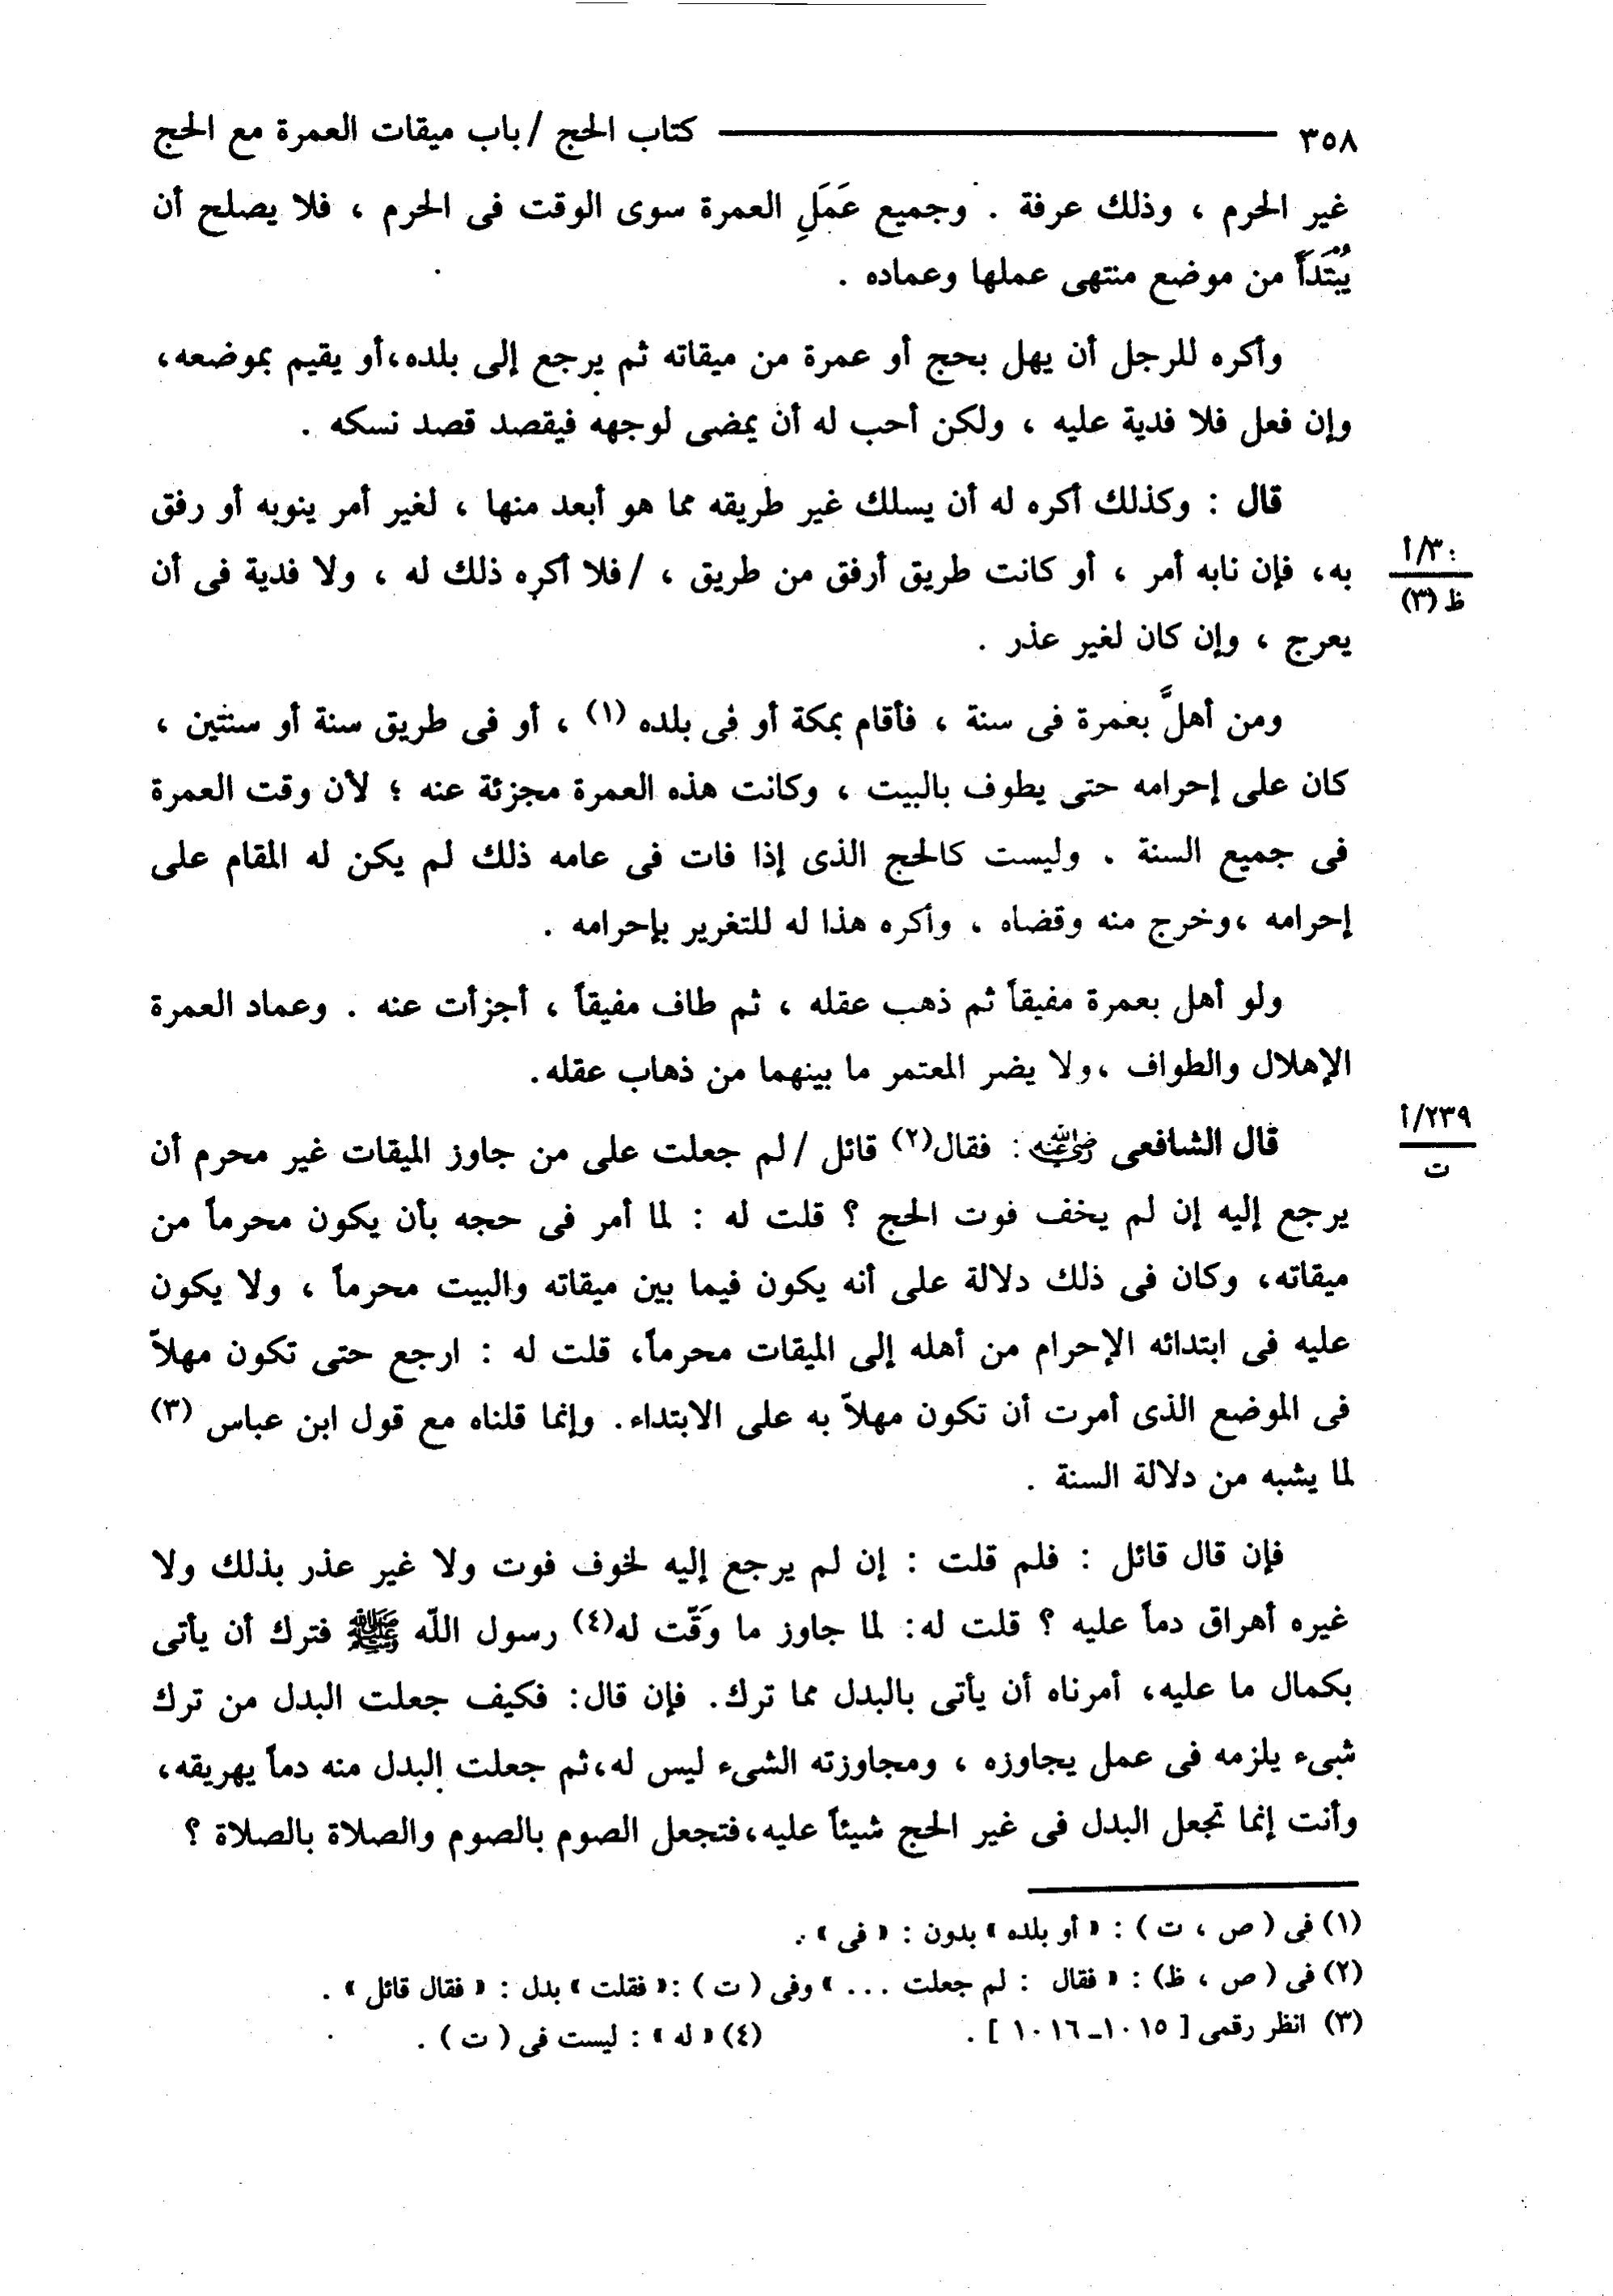 ٣٥٨ كتاب الحج / باب ميقات العمرة مع الحج
غير الحرم ، وذلك عرفة . وجميع عَمَلِ العمرة سوى الوقت فى الحرم ، فلا يصلح أن
يُبْتَدَأ من موضع منتهى عملها وعماده .
وأكره للرجل أن يهل بحج أو عمرة من ميقاته ثم يرجع إلى بلده،أو يقيم بموضعه،
وإن فعل فلا فدية عليه ، ولكن أحب له أن يمضى لوجهه فيقصد قصد نسكه .
قال : وكذلك أكره له أن يسلك غير طريقه مما هو أبعد منها ، لغير أمر ينوبه أو رفق
به، فإن نابه أمر ، أو كانت طريق أرفق من طريق ، / فلا أكره ذلك له ، ولا فدية فى أن
٣٠/أ
ظ (٣)
يعرج ، وإن كان لغير عذر .
ومن أهلَّ بعمرة فى سنة ، فأقام بمكة أو فى بلده (١) ، أو فى طريق سنة أو سنتين ،
كان على إحرامه حتى يطوف بالبيت ، وكانت هذه العمرة مجزئة عنه ؛ لأن وقت العمرة
فى جميع السنة . وليست كالحج الذى إذا فات فى عامه ذلك لم يكن له المقام على
إحرامه ،وخرج منه وقضاه ، وأكره هذا له للتغرير بإحرامه .
ولو أهل بعمرة مفيقاً ثم ذهب عقله ، ثم طاف مفيقاً ، أجزأت عنه . وعماد العمرة
الإهلال والطواف ،ولا يضر المعتمر ما بينهما من ذهاب عقله.
قال الشافعى رضي الله عنه : فقال(٢) قائل / لم جعلت على من جاوز الميقات غير محرم أن
٢٣٩/أ
ت
يرجع إليه إن لم يخف فوت الحج ؟ قلت له : لما أمر فى حجه بأن يكون محرماً من
ميقاته، وكان فى ذلك دلالة على أنه يكون فيما بين ميقاته والبيت محرماً ، ولا يكون
عليه فى ابتدائه الإحرام من أهله إلى الميقات محرماً، قلت له : ارجع حتى تكون مهلاً
فى الموضع الذى أمرت أن تكون مهلاً به على الابتداء. وإنما قلناه مع قول ابن عباس (٣)
لما يشبه من دلالة السنة .
فإن قال قائل : فلم قلت : إن لم يرجع إليه لخوف فوت ولا غير عذر بذلك ولا
غيره أهراق دماً عليه ؟ قلت له: لما جاوز ما وَقَّت له(٤) رسول اللّه ﷺ فترك أن يأتى
بكمال ما عليه، أمرناه أن يأتى بالبدل مما ترك. فإن قال: فكيف جعلت البدل من ترك
شىء يلزمه فى عمل يجاوزه ، ومجاوزته الشىء ليس له،ثم جعلت البدل منه دماً يهريقه،
وأنت إنما تجعل البدل فى غير الحج شيئاً عليه،فتجعل الصوم بالصوم والصلاة بالصلاة ؟
(١) فى ( ص ، ت ) : « أو بلده » بدون : « فى » .
(٢) فى ( ص ، ظ) : « فقال : لم جعلت ... » وفى ( ت ) :« فقلت » بدل : « فقال قائل » .
(٣) انظر رقمى [ ١٠١٥ـ١٠١٦ ] . (٤) « له » : ليست فى ( ت ) .